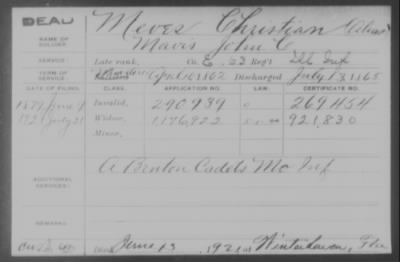 DEAD
NAME OF SOLDIER: Meves Christian Alias
Mavis John C
SERVICE: Late rank, Co. E, 23 Reg't Ill Inf
TERM OF SERVICE: April 10 1862 Discharged July 13, 1865
DATE OF FILING. CLASS. APPLICATION NO. LAW. CERTIFICATE NO.
1879 June 9 Invalid, 290939 269454
1921 July 21 Widow, 1176922 921,830
Minor,
ADDITIONAL SERVICES: A Benton Cadets Mo Inf
REMARKS:
Died June 13, 1921 at Winterhaven, Fla